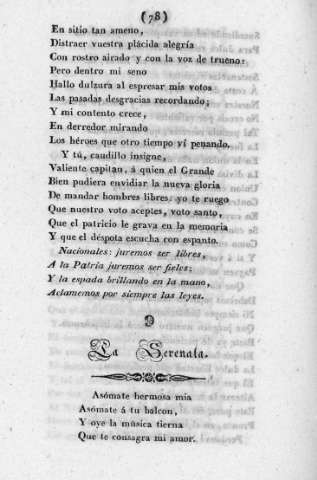 (78)
En sitio tan ameno,
Distraer vuestra plácida alegría
Con rostro airado y con la voz de trueno:
Pero dentro mi seno
Hallo dulzura al espresar mis votos
Las pasadas desgracias recordando;
Y mi contento crece,
En derredor mirando
Los héroes que otro tiempo ví penando.
Y tú, caudillo insigne,
Valiente capitan, á quien el Grande
Bien pudiera envidiar la nueva gloria
De mandar hombres libres, yo te ruego
Que nuestro voto aceptes, voto santo,
Que el patricio le grava en la memoria
Y que el déspota escucha con espanto.
Nacionales: juremos ser libres,
A la Patria juremos ser fieles:
Y la espada brillando en la mano,
Aclamemos por siempre las leyes.
La Serenata.
Asómate hermosa mia
Asómate á tu balcon,
Y oye la música tierna
Que te consagra mi amor.